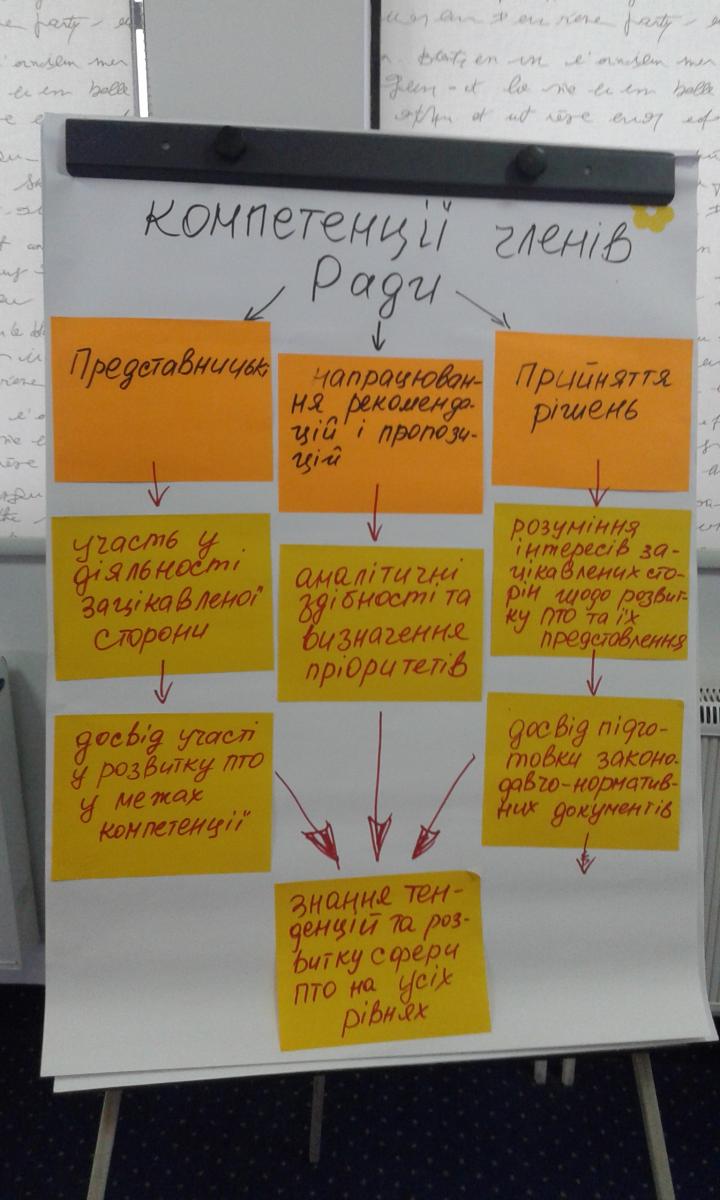 компетенції членів
Ради
Представницькі
напрацюван-
ня рекоменда-
цій і пропози-
цій
Прийняття
рішень
участь у
діяльності
зацікавленої
сторони
аналітичні
здібності та
визначення
пріоритетів
розуміння
інтересів за-
цікавлених сто-
рін щодо розвит-
ку ПТО та їх
представлення
досвід участі
у розвитку ПТО
у межах
компетенції
досвід підго-
товки законо-
давчо-норматив-
них документів
знання тен-
денцій та роз-
витку сфери
ПТО на усіх
рівнях